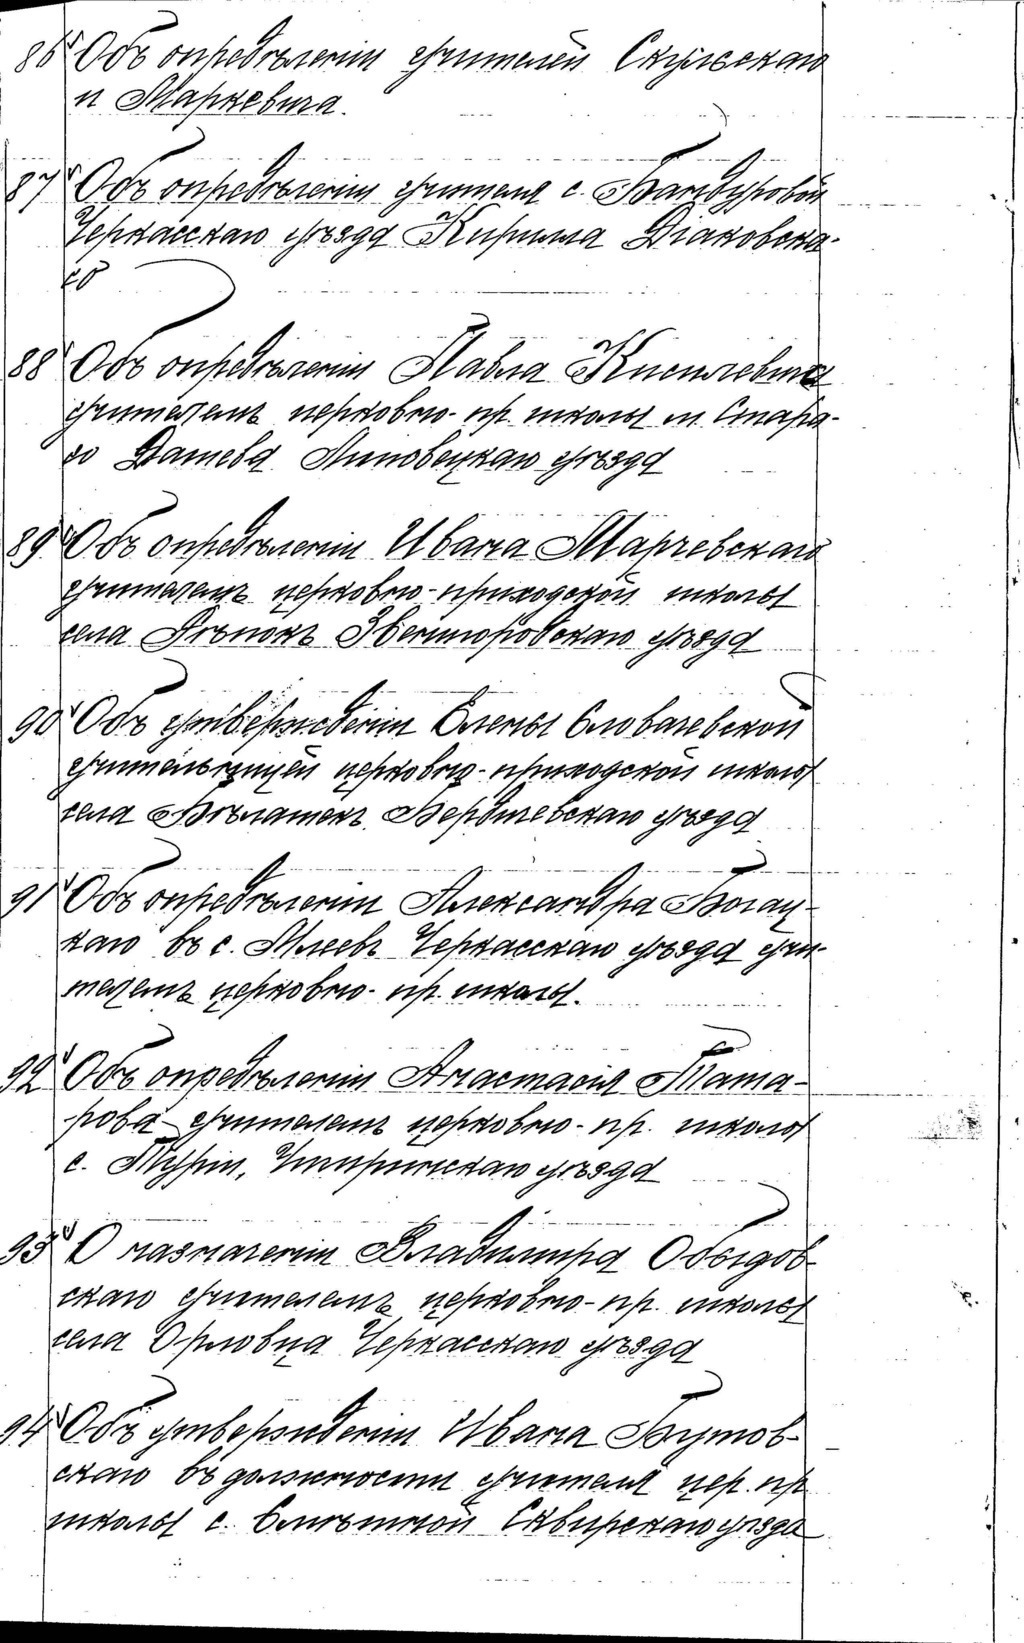 86 Объ опредѣленіи учителей Скульскаго
и Маркевича.
87 Объ опредѣленіи учителя с. Бандуровой
Черкасскаго уѣзда Кирилла Діаковска-
го
88 Объ опредѣленіи Павла Кисилевича
учителемъ церковно-пр. школы м. Стара-
го Дашева Липовецкаго уѣзда
89 Объ опредѣленіи Ивана Марчевскаго
учителемъ церковно-приходской школы
села Рѣпокъ Звенигородскаго уѣзда
90 Объ утвержденіи Елены Словачевской
учительницей церковно-приходской школы
села Бѣлашекъ Бердичевскаго уѣзда
91 Объ опредѣленіи Александра Богац-
каго въ с. Млеевъ Черкасскаго уѣзда учи-
телемъ церковно-пр. школы.
92 Объ опредѣленіи Анастасія Тата-
рова учителемъ церковно-пр. школы
с. Туріи, Чигиринскаго уѣзда
93 О назначеніи Владимира Обыдов-
скаго учителемъ церковно-пр. школы
села Орловца Черкасскаго уѣзда
94 Объ утвержденіи Ивана Бутов-
скаго въ должности учителя цер. пр
школы с. Сквирскаго уѣзда